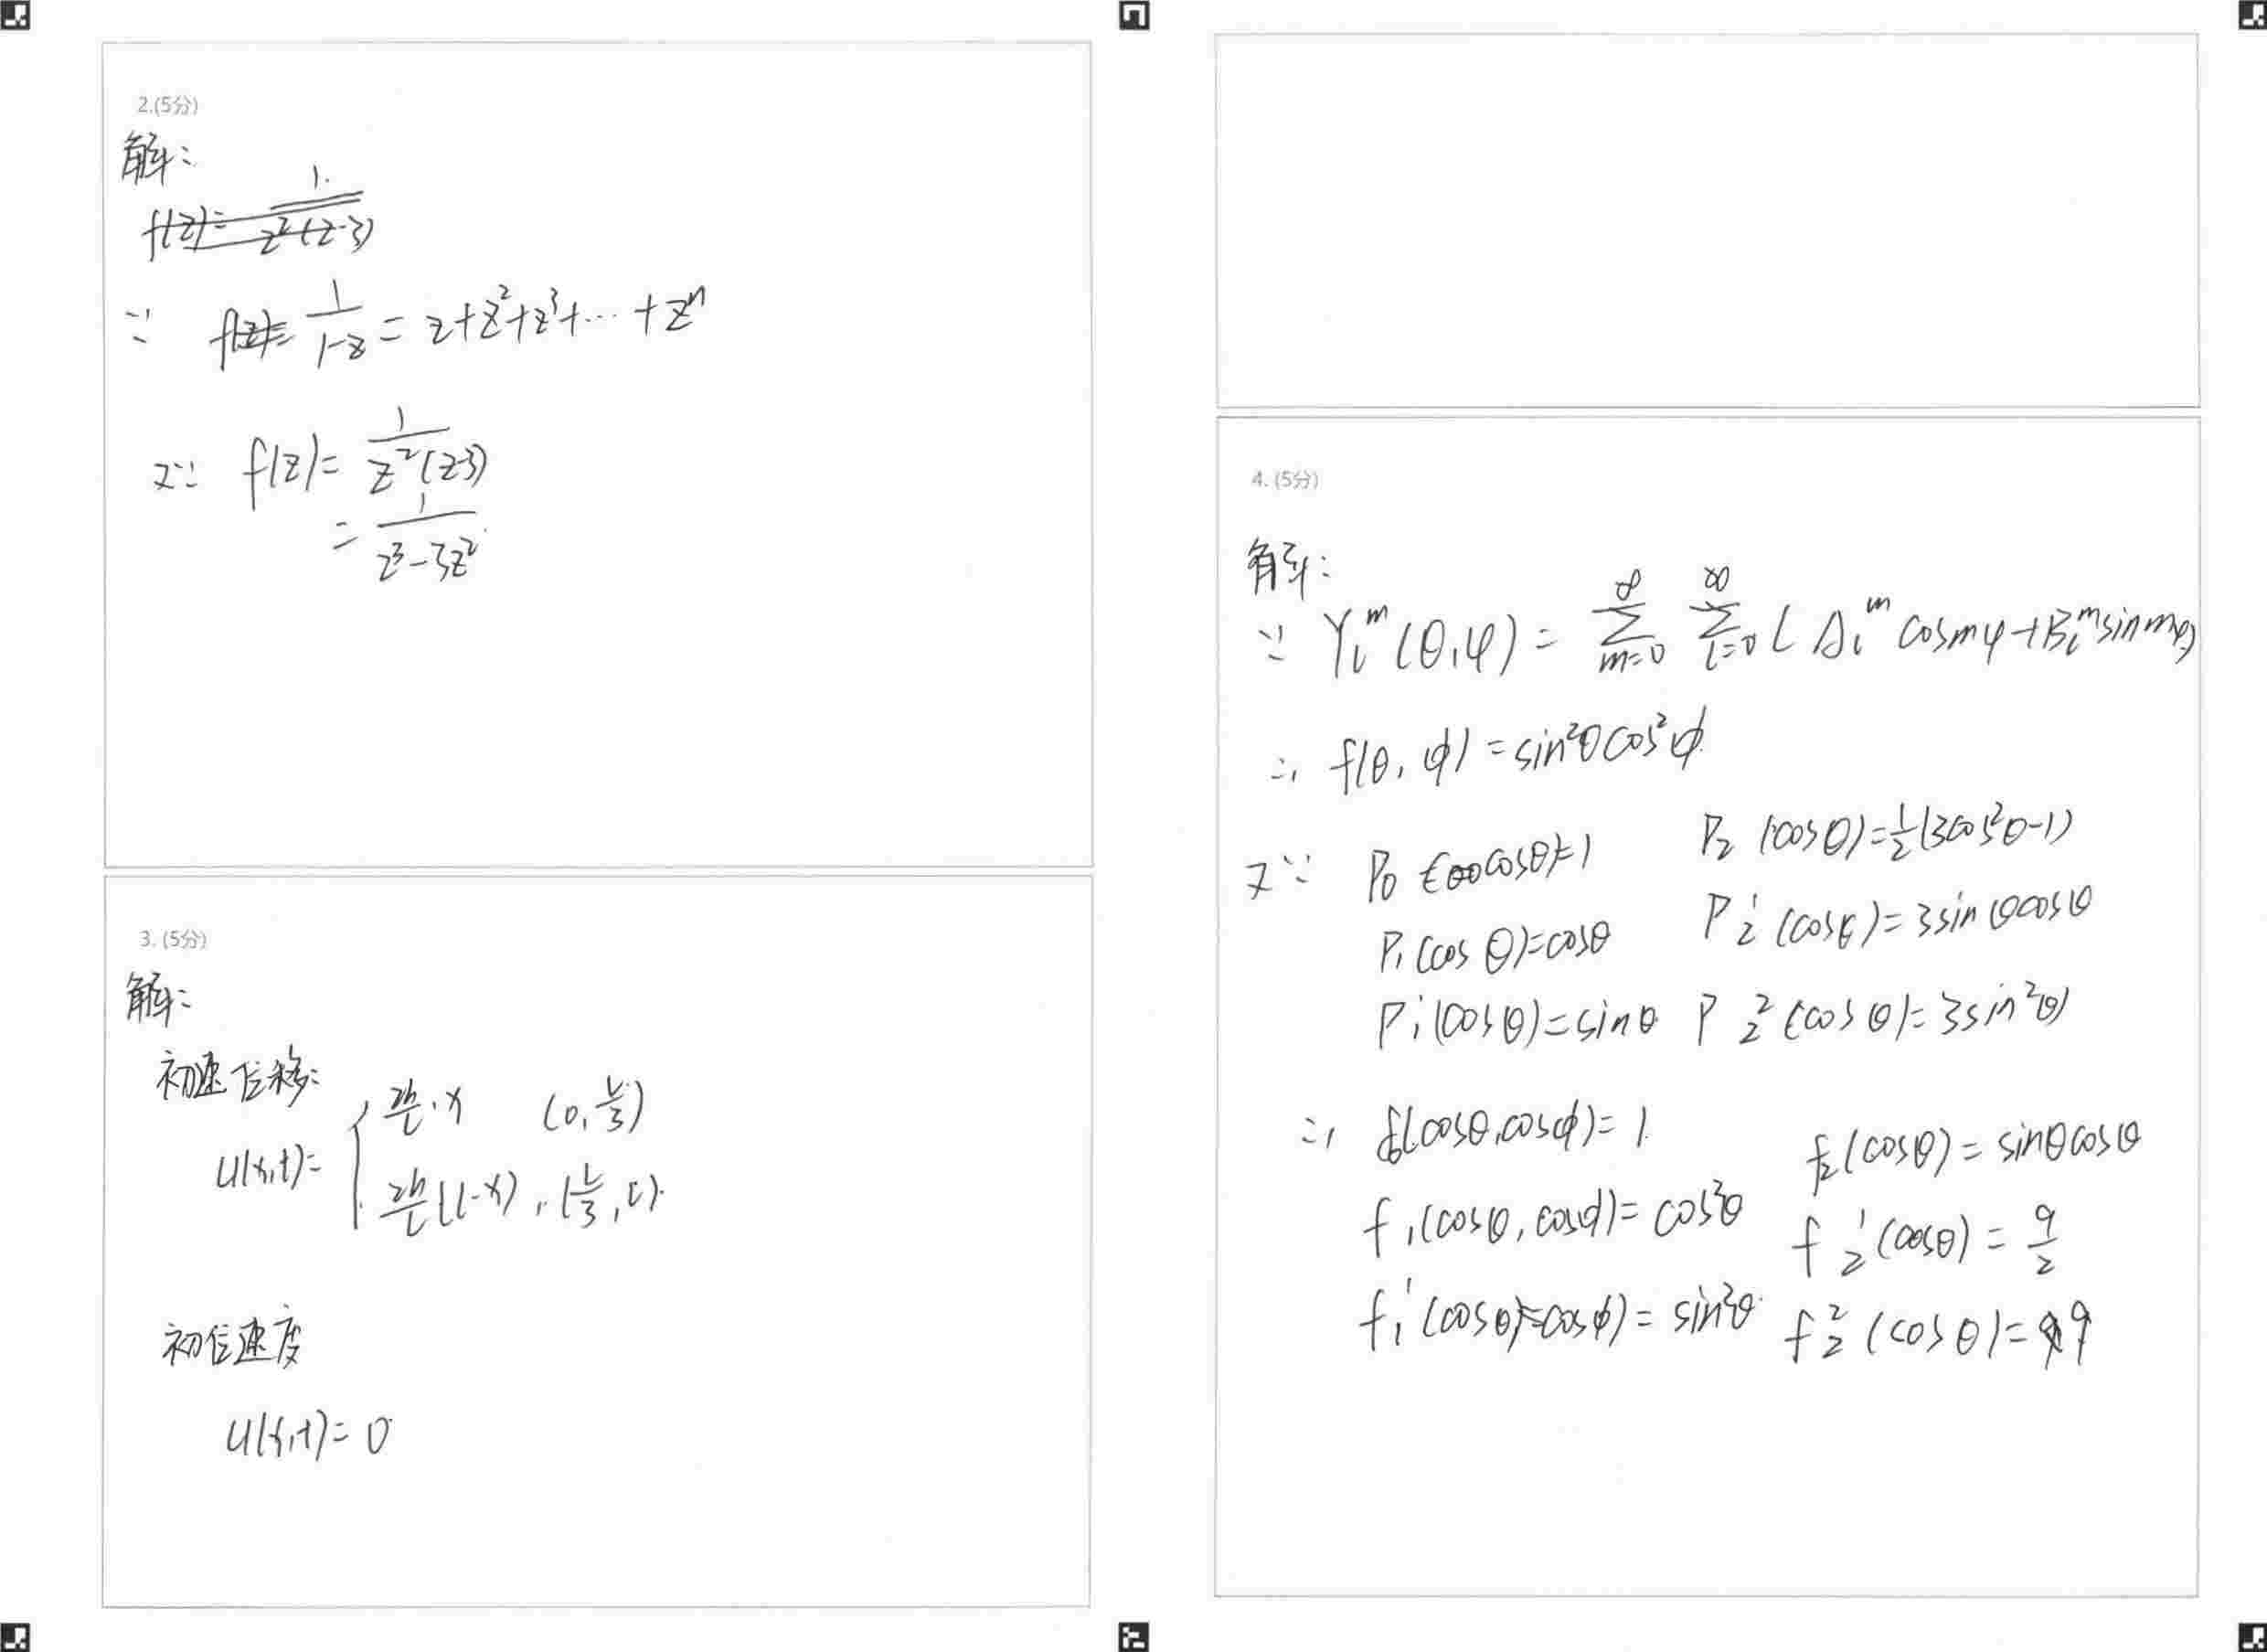 2.(5分)
解:
f(z)= 1/(z²(z-3))
∵ f(z)= 1/(1-z) = z+z²+z³+…+zⁿ
又∵ f(z)= 1/(z²(z-3))
= 1/(z³-3z²)
3. (5分)
解:
初速位移:
u(x,t)= { 2h/L·x (0, L/3)
2h/L(L-x), (L/3, L).
初位速度
u(x,t)= 0
4. (5分)
解:
∵ Yₗᵐ(θ,φ) = ∑_{m=0}^{∞} ∑_{l=0}^{∞} ( Aₗᵐ cosmφ+Bₗᵐ sinmφ)
∴ f(θ, φ) = sin²θcos²φ
又∵ P₀ (cosθ)=1 P₂ (cosθ)=½(3cos²θ-1)
P₁(cosθ)=cosθ P₂¹(cosθ)=3sinθcosθ
P₁¹(cosθ)=sinθ P₂²(cosθ)=3sin²θ
∴ f₀(cosθ,cosφ)= 1 f₂(cosθ)= sinθcosθ
f₁(cosθ, cosφ)= cos²θ f₂¹(cosθ) = 9/2
f₁¹(cosθ)=cosφ)= sin²θ f₂²(cosθ)=9